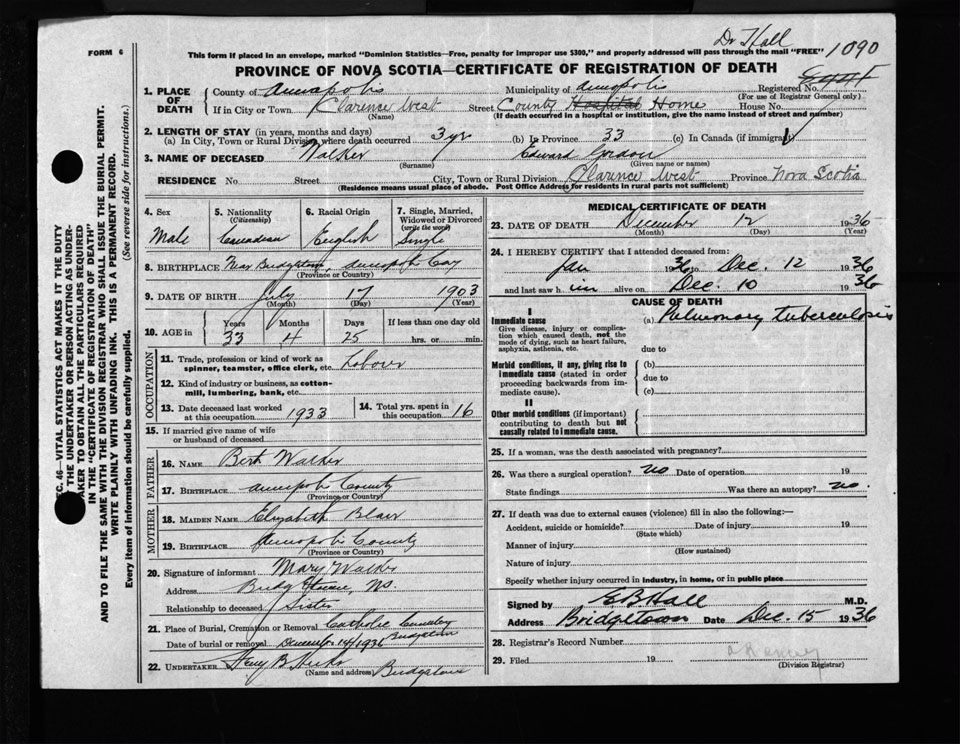 Dr Hall
1090
FORM 6
This form if placed in an envelope, marked "Dominion Statistics—Free, penalty for improper use $300," and properly addressed will pass through the mail "FREE"
PROVINCE OF NOVA SCOTIA—CERTIFICATE OF REGISTRATION OF DEATH
1. PLACE OF DEATH
County of Annapolis Municipality of Annapolis Registered No.
(For use of Registrar General only)
If in City or Town Clarence West Street County Hospital Home House No.
(Name) (If death occurred in a hospital or institution, give the name instead of street and number)
2. LENGTH OF STAY (in years, months and days)
(a) In City, Town or Rural Division where death occurred 3 yr (b) In Province 33 (c) In Canada (if immigrant)
3. NAME OF DECEASED Walker Edward Gordon
(Surname) (Given name or names)
RESIDENCE No. Street City, Town or Rural Division Clarence West Province Nova Scotia
(Residence means usual place of abode. Post Office Address for residents in rural parts not sufficient)
4. Sex Male
5. Nationality (Citizenship) Canadian
6. Racial Origin English
7. Single, Married, Widowed or Divorced (write the word) Single
8. BIRTHPLACE Near Bridgetown, Annapolis Coy
(Province or Country)
9. DATE OF BIRTH July 17 1903
(Month) (Day) (Year)
10. AGE in Years 33 Months 4 Days 25 If less than one day old hrs. or min.
OCCUPATION
11. Trade, profession or kind of work as spinner, teamster, office clerk, etc. Labour
12. Kind of industry or business, as cotton-mill, lumbering, bank, etc.
13. Date deceased last worked at this occupation 1933
14. Total yrs. spent in this occupation 16
15. If married give name of wife or husband of deceased
FATHER
16. NAME Bert Walker
17. BIRTHPLACE Annapolis County
(Province or Country)
MOTHER
18. MAIDEN NAME Elizabeth Blair
19. BIRTHPLACE Annapolis County
(Province or Country)
20. Signature of informant Mary Walker
Address NS.
Relationship to deceased Sister
21. Place of Burial, Cremation or Removal Catholic Bridgetown
Date of burial or removal December 14/1936
22. UNDERTAKER B Hicks Bridgetown
(Name and address)
MEDICAL CERTIFICATE OF DEATH
23. DATE OF DEATH December 12 1936
(Month) (Day) (Year)
24. I HEREBY CERTIFY that I attended deceased from:
Jan 1936 to Dec. 12 1936
and last saw h im alive on Dec. 10 1936
CAUSE OF DEATH
I
Immediate cause
Give disease, injury or complication which caused death, not the mode of dying, such as heart failure, asphyxia, asthenia, etc.
(a) Pulmonary Tuberculosis
due to
Morbid conditions, if any, giving rise to immediate cause (stated in order proceeding backwards from immediate cause).
(b)
due to
(c)
II
Other morbid conditions (if important) contributing to death but not causally related to immediate cause.
25. If a woman, was the death associated with pregnancy?
26. Was there a surgical operation? no Date of operation 19
State findings Was there an autopsy? no.
27. If death was due to external causes (violence) fill in also the following:—
Accident, suicide or homicide? Date of injury 19
(State which)
Manner of injury
(How sustained)
Nature of injury
Specify whether injury occurred in industry, in home, or in public place
Signed by E B Hall M.D.
Address Bridgetown Date Dec. 15 1936
28. Registrar's Record Number
29. Filed 19
(Division Registrar)
C. 46—VITAL STATISTICS ACT MAKES IT THE DUTY
THE UNDERTAKER OR PERSON ACTING AS UNDER-
AKER TO OBTAIN ALL THE PARTICULARS REQUIRED
IN THE "CERTIFICATE OF REGISTRATION OF DEATH"
AND TO FILE THE SAME WITH THE DIVISION REGISTRAR WHO SHALL ISSUE THE BURIAL PERMIT.
WRITE PLAINLY WITH UNFADING INK. THIS IS A PERMANENT RECORD.
Every item of information should be carefully supplied. (See reverse side for instructions.)